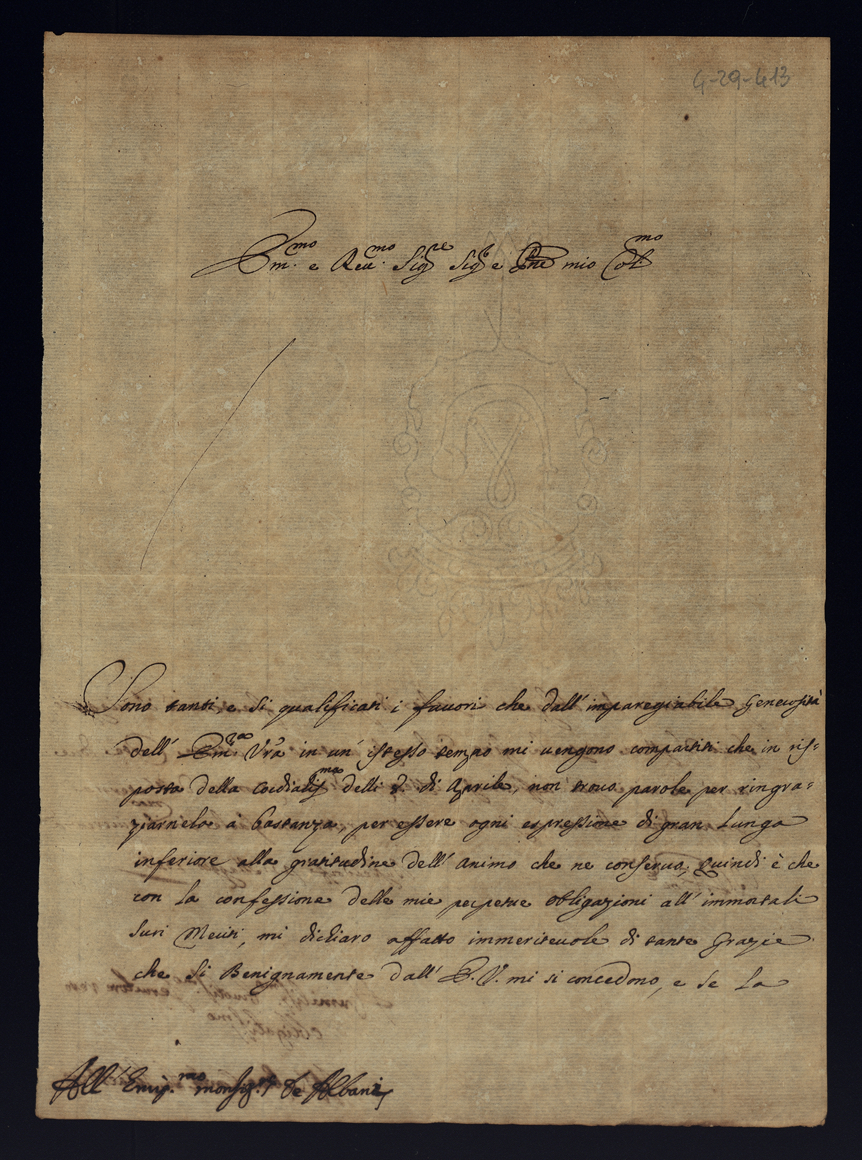 4-29-413
Em.mo e Reu.mo Sig.re Sig.r e Pne mio Col.mo
Sono tanti, e si qualificati i fauori che dall' imparegiabile Generosità
dell' Em.za Vr̃a in un' istesso tempo mi uengono compartiti che in ris=
posta della Cordialis.ma delli di Aprile, non trouo parole per ringra=
ziarnela à bastanza, per essere ogni espressione di gran lunga
inferiore alla gratitudine dell' animo che ne conseruo, quindi è che
con la confessione delle mie perpetue obligazioni all' immortali
suoi Meriti, mi dichiaro affatto immeriteuole di tante Grazie
che si Benignamente dall' E. V. mi si concedono, e se la
All' Emin.mo monsig.r de Albani